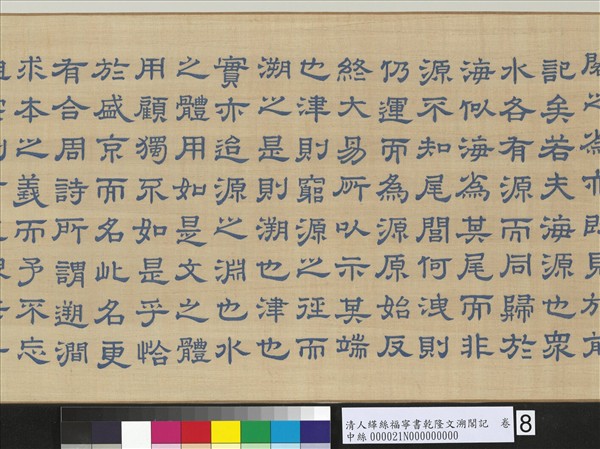 閣之為亦即見於前
記矣若夫海源也眾
水各有源而同歸於
海似海為其尾而非
源不知尾閭何洩則
仍運而為源原始反
終大易所以示其端
也津則窮源之徑而
溯之是則溯也津也
實亦迨源之淵也水
之體用如是文之體
用顧獨不如是乎恰
於盛京而名此名更
有合周詩所謂遡澗
求本之義而予不忘
清人緙絲福寧書乾隆文溯閣記 卷 8
中絲 000021N000000000